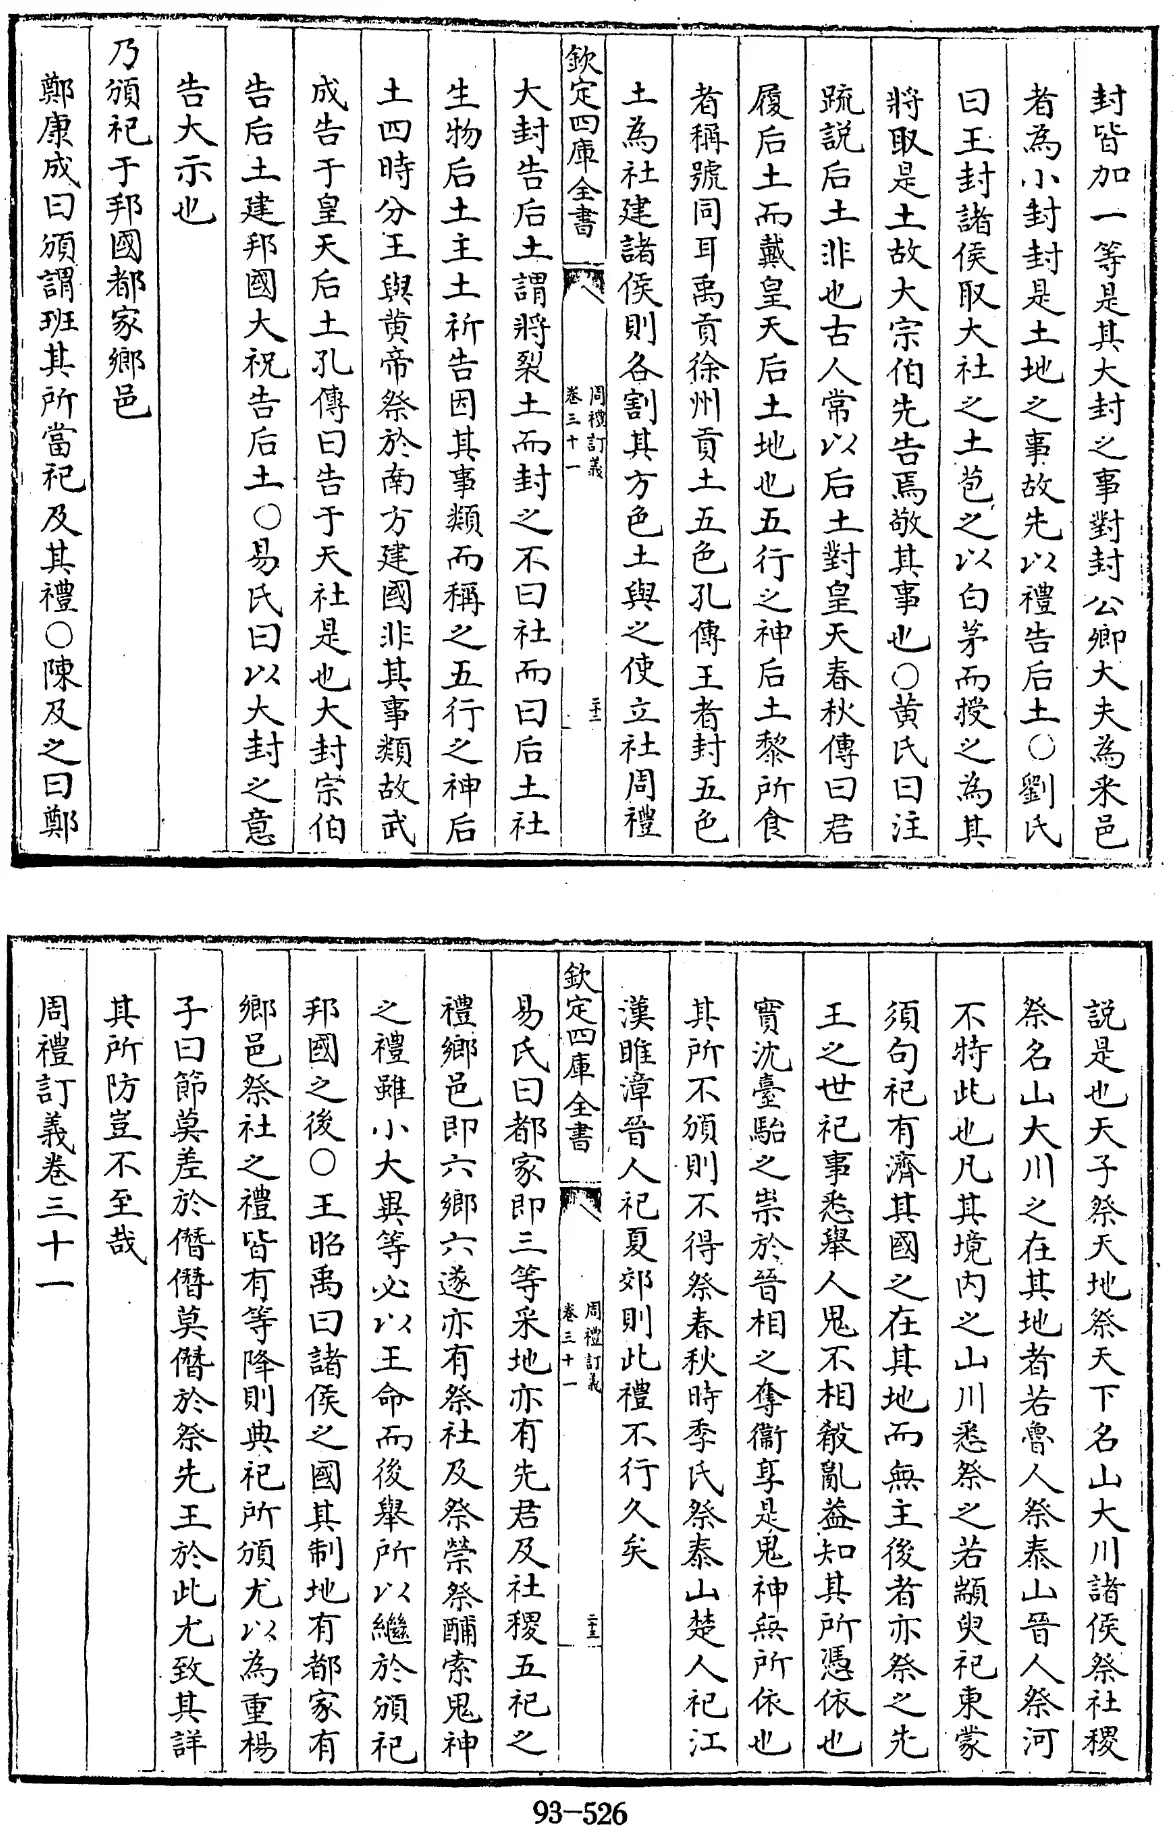 封皆加一等是其大封之事對封公卿大夫為采邑
者為小封封是土地之事故先以禮告后土○劉氏
曰王封諸侯取大社之土苞之以白茅而授之為其
將取是土故大宗伯先告焉敬其事也○黄氏曰注
疏説后土非也古人常以后土對皇天春秋傳曰君
履后土而戴皇天后土地也五行之神后土黎所食
者稱號同耳禹貢徐州貢土五色孔傳王者封五色
土為社建諸侯則各割其方色土與之使立社周禮
欽定四庫全書
周禮訂義
卷三十一
二十二
大封告后土謂將裂土而封之不曰社而曰后土社
生物后土主土祈告因其事類而稱之五行之神后
土四時分王與黄帝祭於南方建國非其事類故武
成告于皇天后土孔傳曰告于天社是也大封宗伯
告后土建邦國大祝告后土○易氏曰以大封之意
告大示也
乃頒祀于邦國都家鄉邑
鄭康成曰頒謂班其所當祀及其禮○陳及之曰鄭
説是也天子祭天地祭天下名山大川諸侯祭社稷
祭名山大川之在其地者若魯人祭泰山晉人祭河
不特此也凡其境内之山川悉祭之若顓臾祀東蒙
須句祀有濟其國之在其地而無主後者亦祭之先
王之世祀事悉舉人鬼不相殽亂益知其所憑依也
實沈臺駘之祟於晉相之奪衞享是鬼神無所依也
其所不頒則不得祭春秋時季氏祭泰山楚人祀江
漢睢漳晉人祀夏郊則此禮不行久矣
欽定四庫全書
周禮訂義
卷三十一
二十三
易氏曰都家即三等采地亦有先君及社稷五祀之
禮鄉邑即六鄉六遂亦有祭社及祭禜祭酺索鬼神
之禮雖小大異等必以王命而後舉所以繼於頒祀
邦國之後○王昭禹曰諸侯之國其制地有都家有
鄉邑祭社之禮皆有等降則典祀所頒尤以為重楊
子曰節莫差於僭僭莫僭於祭先王於此尤致其詳
其所防豈不至哉
周禮訂義卷三十一
93-526